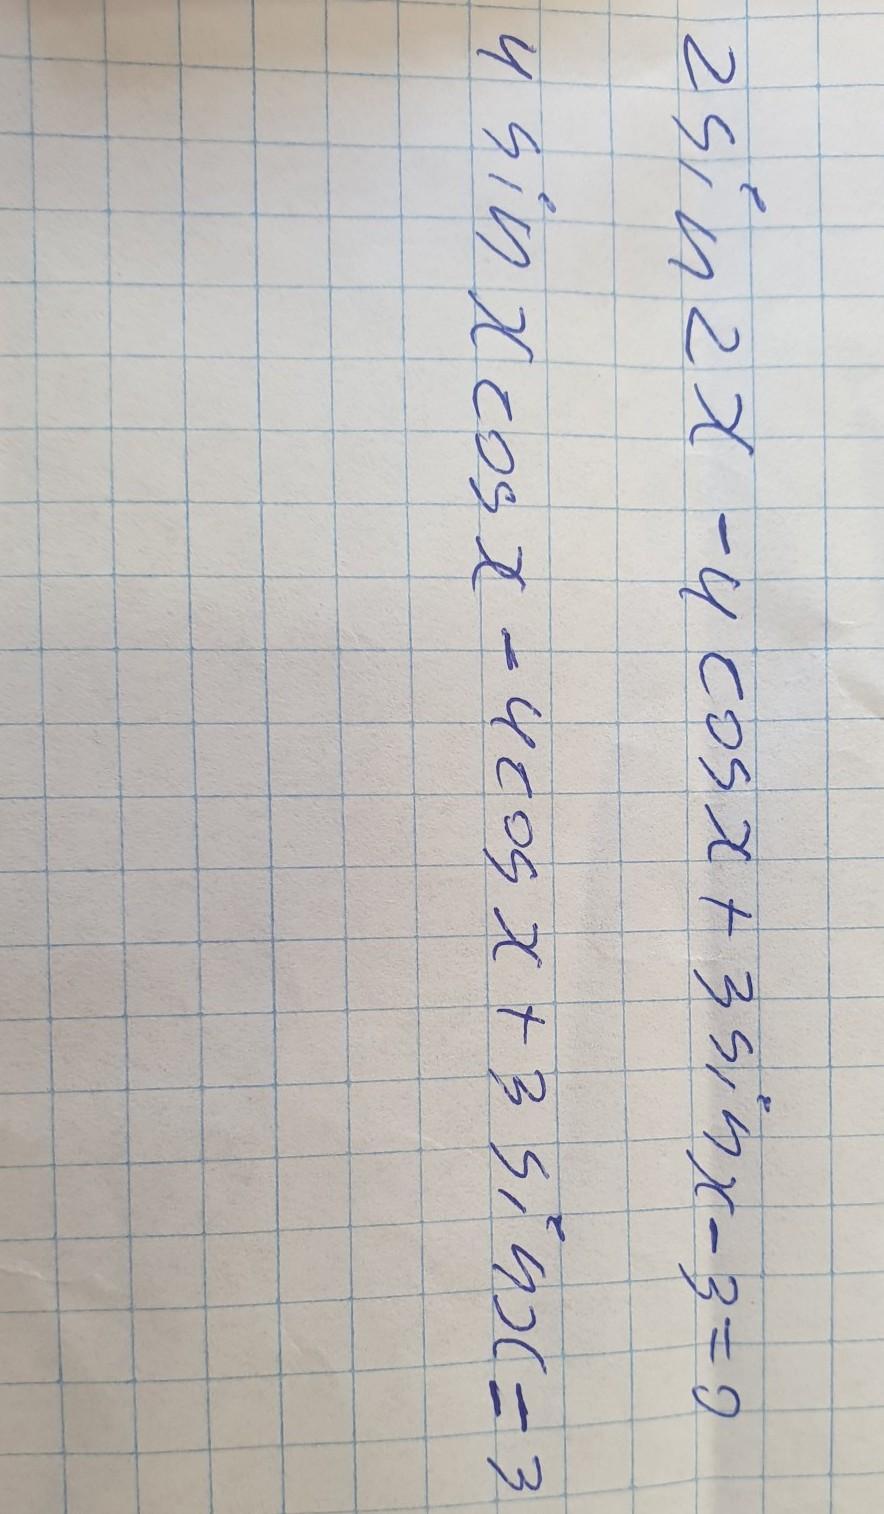 2 sin 2x - 4 cos x + 3 sin x - 3 = 0
4 sin x cos x - 4 cos x + 3 sin x = 3